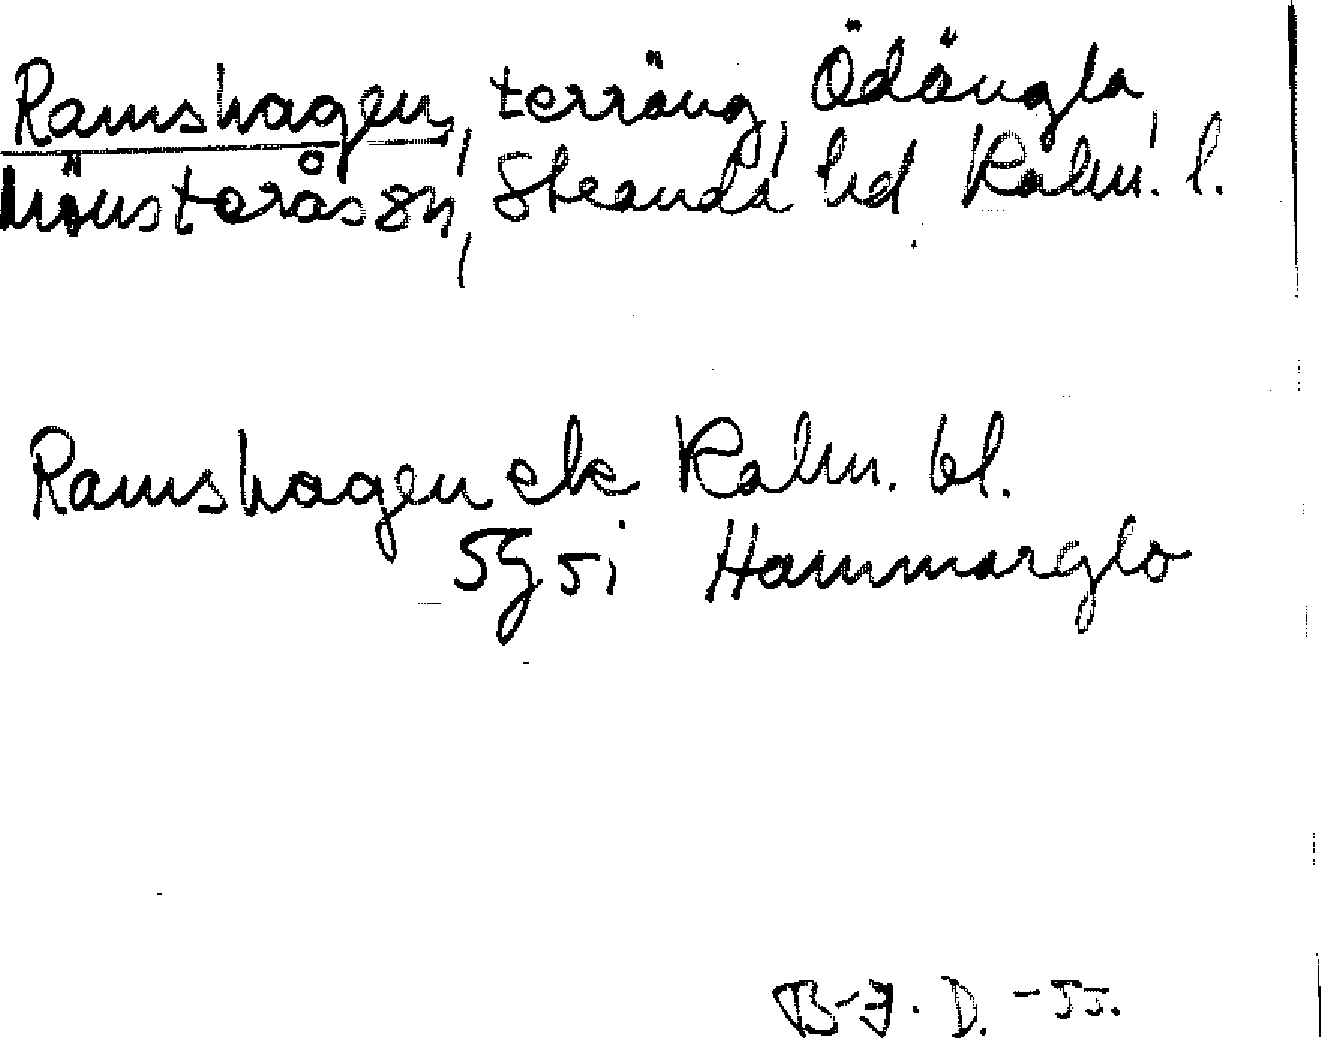 Ramshagen, terräng, Ödängla,
Mönsterås sn, Stranda hd Kalm. l.
Ramshagen ek Kalm. bl.
5g 5i Hammarglo
B-J. D. -55.